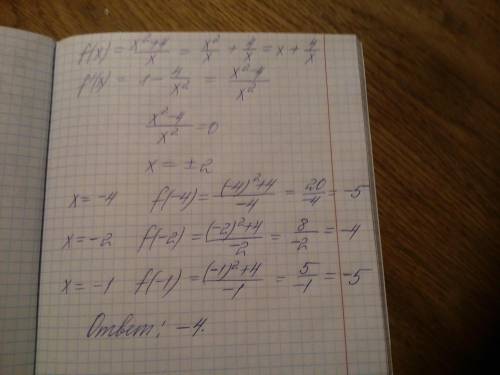 f(x) = (x²+4)/x = x²/x + 4/x = x + 4/x
f'(x) = 1 - 4/x² = (x²-4)/x²
(x²-4)/x² = 0
x = ±2
x = -4 f(-4) = ((-4)²+4)/-4 = 20/-4 = -5
x = -2 f(-2) = ((-2)²+4)/-2 = 8/-2 = -4
x = -1 f(-1) = ((-1)²+4)/-1 = 5/-1 = -5
Ответ: -4.